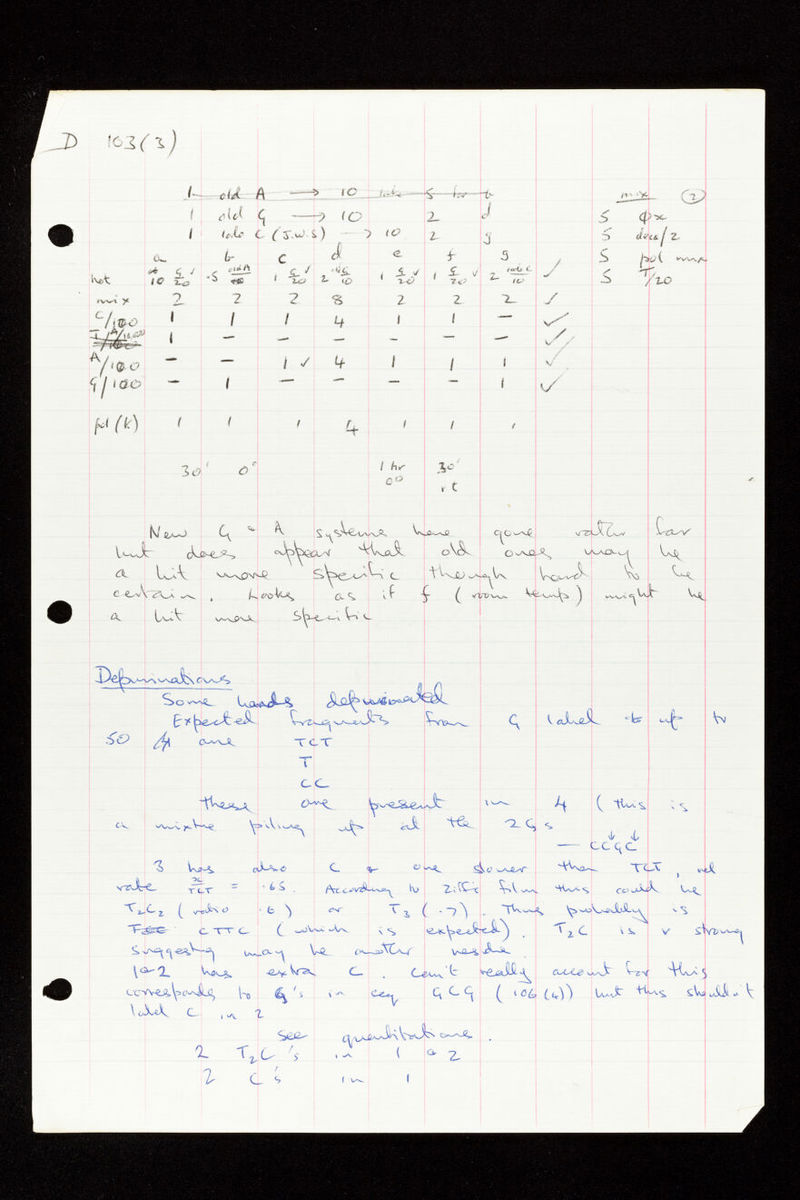 D 103(3)
1 old A → 10 5 b
1 old G → 10 2 d
1 labe C (J.W.S) → 10 2 g
mix ②
5 φx
5 decs/2
5 pol mix
5 T/20
a b c d e f g
hot 10 G/20 ✓ ·5 old A 1 G/20 ✓ 2 old G/10 1 G/20 ✓ 1 G/20 ✓ 2 labe C/10 ✓
mix 2 2 2 8 2 2 2 ✓
C/100 1 1 1 4 1 1 – ✓
1 – – – – – – ✓
A/100 – – 1 ✓ 4 1 1 1 ✓
G/100 – 1 – – – – 1 ✓
pol (K) 1 1 1 4 1 1 1
30' 0° 1 hr 30'
0° rt
New G & A systems have gone rather far
but does appear that old ones may be
a bit more specific though hard to be
certain. Looks as if f (room temp) might be
a bit more specific
Depurinations
Some bands depurinated
Expected fragments from G label up to
50 are TCT
T
CC
These are present in 4 (this is
a mixture piling up at the 2 Gs
– CC↓GC↓
3 has also C & one slower than TCT, rel
rate x/TCT = ·65. According to Ziffs film this could be
T2C2 (ratio ·6) or T3 (·7). Thus probably is
CTTC (which is expected). T2C is v strong
suggesting may be another residue.
1 & 2 has extra C. Can't really account for this
corresponds to G's in seq GCG (106(4)) but this shouldn't
label C in 2
see quantitations.
2 T2C's in 1 & 2
2 C's in 1